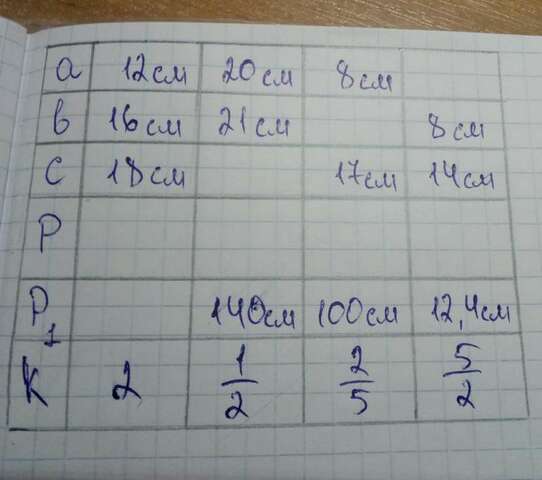 a 12см 20см 8см
b 16см 21см 8см
c 18см 17см 14см
P
P₁ 140см 100см 12,4см
k 2 1/2 2/5 5/2